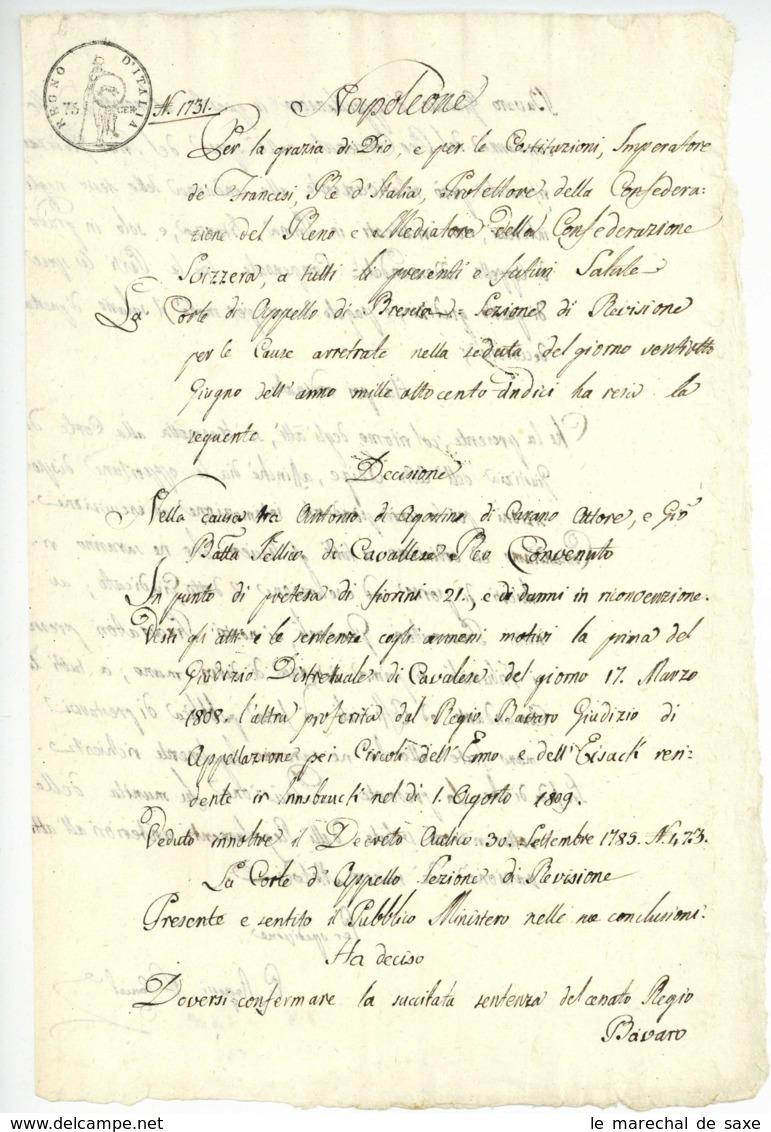 REGNO D'ITALIA
75 CEN.
N. 1731.
Napoleone
Per la grazia di Dio, e per le Costituzioni, Imperatore
de' Francesi, Re d'Italia, Protettore della Confedera:
zione del Reno e Mediatore della Confederazione
Svizzera, a tutti li presenti e futuri Salute
La Corte di Appello di Brescia = Sezione di Revisione
per le Cause arretrate nella seduta del giorno ventiotto
Giugno dell'anno mille ottocento undici ha resa la
seguente
Decisione
Nella causa tra Antonio di Agostino di Carano Attore, e Gio
Batta Fellin di Cavallese Reo Convenuto
In punto di pretesa di fiorini 21., e di danni in riconvenzione.
Visti gli atti e le sentenze cogli annessi motivi la prima del
Giudizio Distrettuale di Cavalese del giorno 17. Marzo
1808. l'altra proferita dal Regio Bavaro Giudizio di
Appellazione pei Circoli dell'Enno e dell'Eisack resi:
dente in Innsbruck nel dì 1. Agosto 1809.
Veduto innoltre il Decreto Aulico 30. Settembre 1785. N. 473.
La Corte d'Appello Sezione di Revisione
Presente e sentito il Pubblico Ministero nelle sue conclusioni.
Ha deciso
Doversi confermare la succitata sentenza del cenato Regio
Bavaro
le marechal de saxe